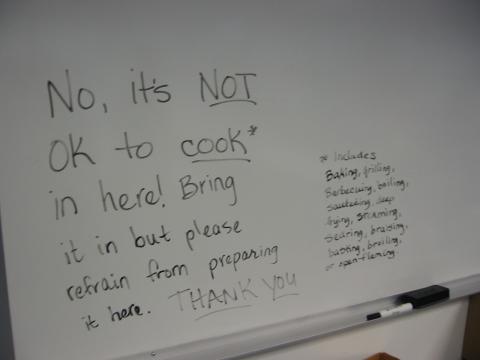 No, it's NOT
OK to cook*
in here! Bring
it in but please
refrain from preparing
it here. THANK YOU
* Includes
Baking, grilling,
Barbecuing, boiling,
sauteeing, deep
frying, steaming,
searing, braising,
basting, broiling,
or open-flaming.